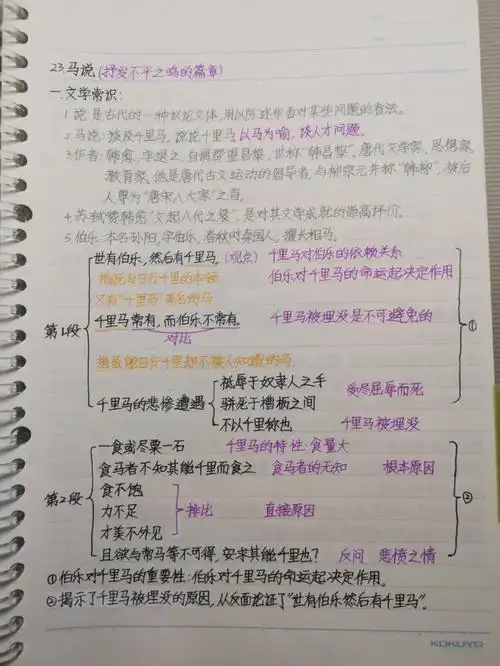 23.马说(抒发不平之鸣的篇章)
一.文学常识:
1.说:是古代的一种议论文体,用以陈述作者对某些问题的看法。
2.马说:谈谈千里马,说说千里马,以马为喻,谈人才问题。
3.作者:韩愈,字退之,自谓郡望昌黎,世称"韩昌黎"。唐代文学家、思想家、
教育家。他是唐代古文运动的倡导者,与柳宗元并称"韩柳",被后
人尊为"唐宋八大家"之首。
4.苏轼赞韩愈"文起八代之衰",是对其文学成就的崇高评价。
5.伯乐:本名孙阳,字伯乐,春秋时秦国人,擅长相马。
第1段
世有伯乐,然后有千里马。(观点) 千里马对伯乐的依赖关系
指既有日行千里的本领 伯乐对千里马的命运起决定作用
又有"千里马"美名的马
千里马常有,而伯乐不常有。 千里马被埋没是不可避免的
对比
指虽能日行千里却不被人知道的马
千里马的悲惨遭遇
祗辱于奴隶人之手
骈死于槽枥之间 受尽屈辱而死
不以千里称也 千里马被埋没
①
第2段
一食或尽粟一石 千里马的特性:食量大
食马者不知其能千里而食之 食马者的无知 根本原因
食不饱
力不足 排比 直接原因
才美不外见
且欲与常马等不可得,安求其能千里也? 反问 悲愤之情
②
①伯乐对千里马的重要性:伯乐对千里马的命运起决定作用。
②揭示了千里马被埋没的原因,从反面论证了"世有伯乐然后有千里马"。
KOKUYO